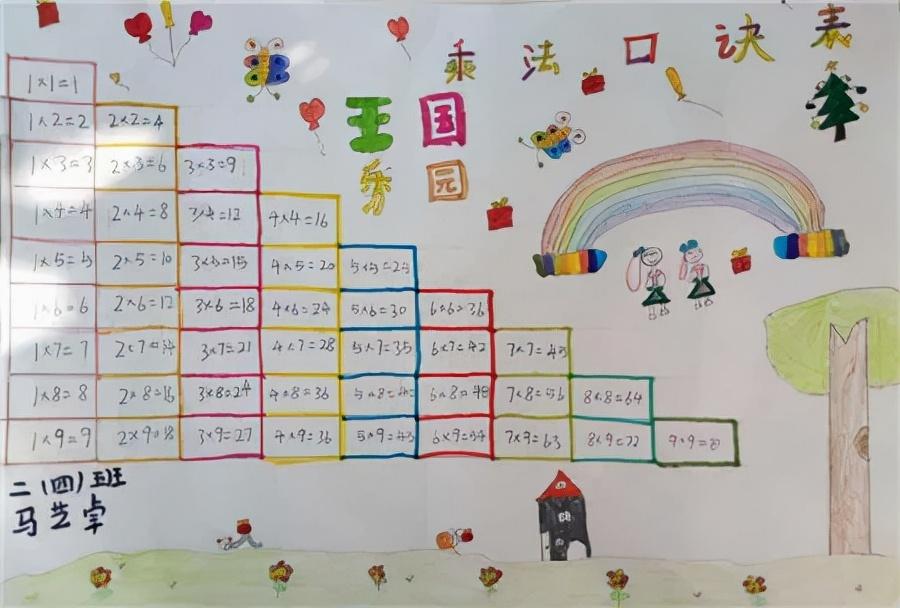 乘法口诀表
王国
乐园
1×1=1
1×2=2 2×2=4
1×3=3 2×3=6 3×3=9
1×4=4 2×4=8 3×4=12 4×4=16
1×5=5 2×5=10 3×5=15 4×5=20 5×5=25
1×6=6 2×6=12 3×6=18 4×6=24 5×6=30 6×6=36
1×7=7 2×7=14 3×7=21 4×7=28 5×7=35 6×7=42 7×7=49
1×8=8 2×8=16 3×8=24 4×8=36 5×8=40 6×8=48 7×8=56 8×8=64
1×9=9 2×9=18 3×9=27 4×9=36 5×9=45 6×9=54 7×9=63 8×9=72
二(四)班
马艺卓